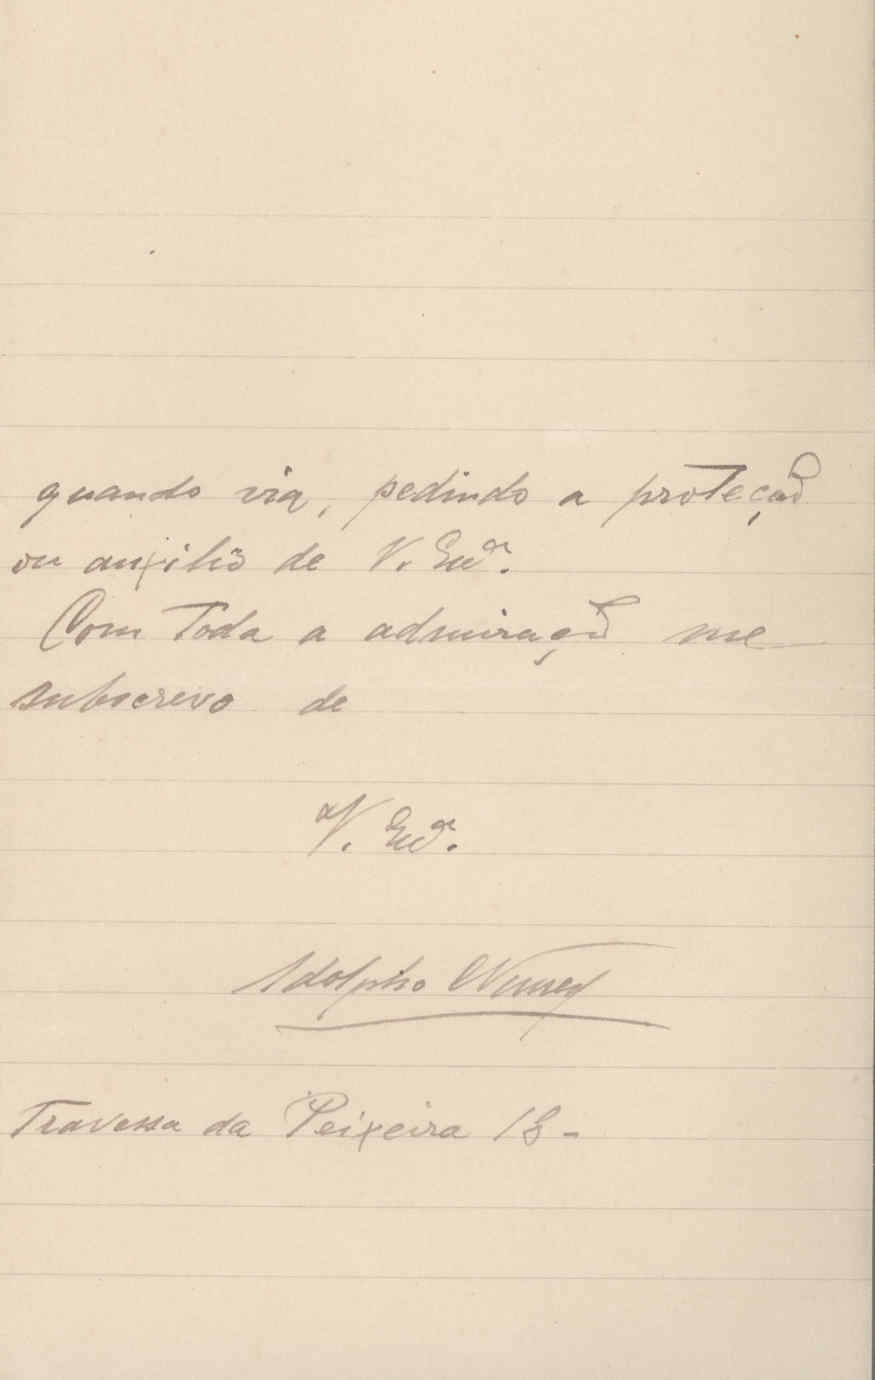 quando via, pedindo a proteção
ou auxilio de V. Exª.
Com toda a admiração me
subscrevo de
V. Exª.
Adolpho Nunes
Travessa da Peixeira 18-